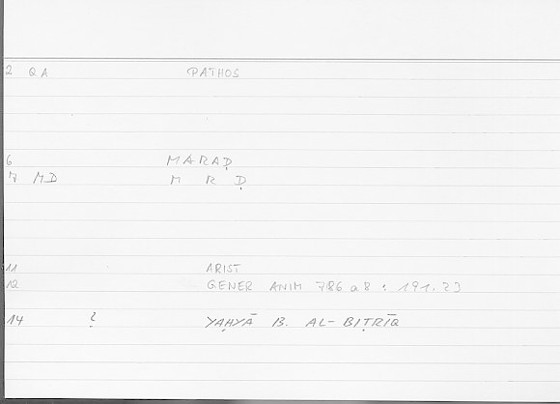 2 QA PATHOS
6 MARAḌ
7 MD M R Ḍ
11 ARIST
12 GENER ANIM 786 a 8 : 191.23
14 ? YAḤYĀ B. AL-BIṬRĪQ